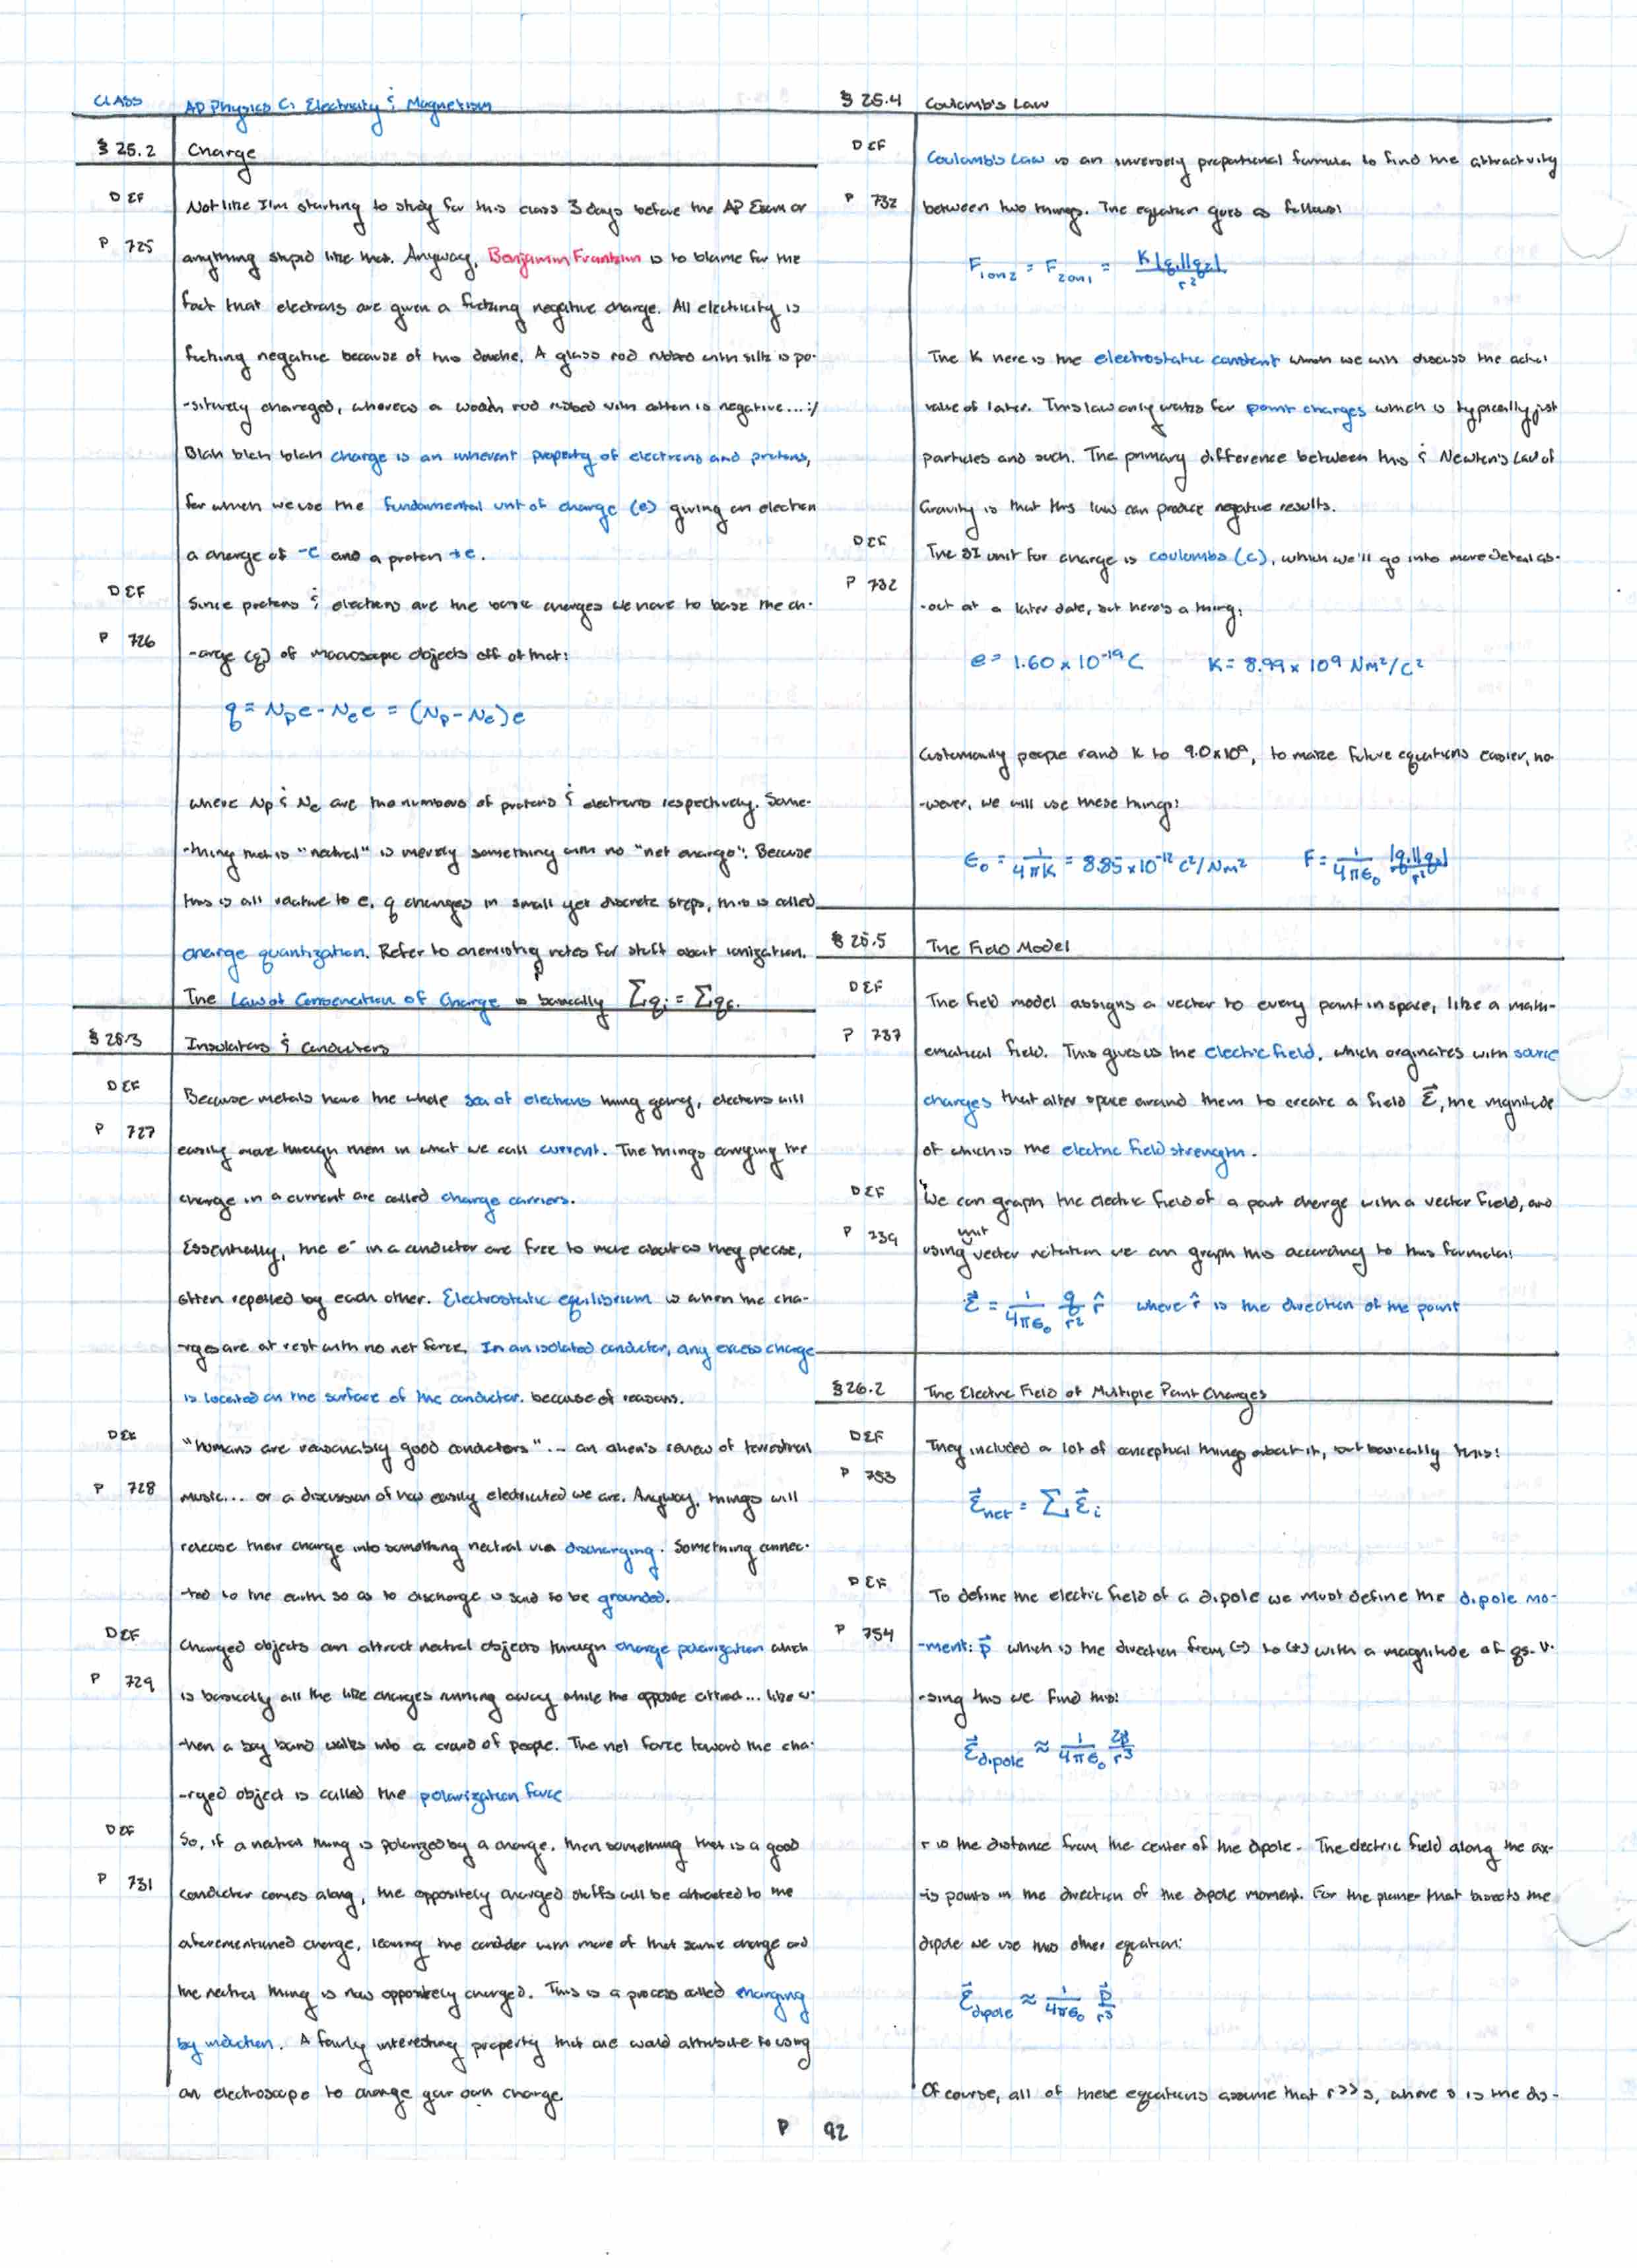 CLASS AP Physics C: Electricity & Magnetism
§ 25.2 Charge
DEF Not like I'm starting to study for this class 3 days before the AP Exam or
P 725 anything stupid like that. Anyway, Benjamin Franklin is to blame for the
fact that electrons are given a fucking negative charge. All electricity is
fucking negative because of this douche. A glass rod rubbed with silk is po-
-sitively chareged, whereas a wooden rod rubbed with cotton is negative... :/
Blah blah blah charge is an inherent property of electrons and protons,
for which we use the fundamental unit of charge (e) giving an electron
a charge of -e and a proton +e.
DEF Since protons & electrons are the basic charges we have to base the ch-
P 726 -arge (q) of macroscopic objects off of that:
q = Npe - Nee = (Np - Ne)e
where Np & Ne are the numbers of protons & electrons respectively. Some-
-thing that is "neutral" is merely something with no "net charge". Because
this is all relative to e, q changes in small yet discrete steps, this is called
charge quantization. Refer to chemistry notes for stuff about ionization.
The Law of Conservation of Charge is basically Σqi = Σqf.
§ 25.3 Insulators & Conductors
DEF Because metals have the whole sea of electrons thing going, electrons will
P 727 easily move through them in what we call current. The things carrying the
charge in a current are called charge carriers.
Essentially, the e⁻ in a conductor are free to move about as they please,
often repelled by each other. Electrostatic equilibrium is when the cha-
-rges are at rest with no net force. In an isolated conductor, any excess charge
is located on the surface of the conductor. because of reasons.
DEF "Humans are reasonably good conductors" -- an alien's review of terrestrial
P 728 music... or a discussion of how easily electricuted we are. Anyway, things will
release their charge into something neutral via discharging. Something connec-
-ted to the earth so as to discharge is said to be grounded.
DEF Changed objects can attract neutral objects through charge polarization which
P 729 is basically all the like charges running away while the opposite attract... like w-
-hen a boy band walks into a crowd of people. The net force toward the cha-
-rged object is called the polarization force
DEF So, if a neutral thing is polarized by a charge, then something that is a good
P 731 conductor comes along, the oppositely charged stuffs will be attracted to the
aforementioned charge, leaving the conductor with more of that same charge and
the neutral thing is now oppositely charged. This is a process called charging
by induction. A fairly interesting property that one would attribute to using
an electroscope to change your own charge.
§ 25.4 Coulomb's Law
DEF Coulomb's Law is an inversely proportional formula to find the attractivity
P 732 between two things. The equation goes as follows:
F1on2 = F2on1 = K|q1||q2| / r²
The K here is the electrostatic constant whom we will discuss the actual
value of later. This law only works for point charges which is typically just
particles and such. The primary difference between this & Newton's Law of
Gravity is that this law can produce negative results.
DEF The SI unit for charge is coulombs (C), which we'll go into more detail ab-
P 732 -out at a later date, but here's a thing:
e = 1.60 × 10⁻¹⁹ C K = 8.99 × 10⁹ Nm²/C²
Customarily people rand K to 9.0×10⁹, to make future equations easier, ho-
-wever, we will use these things:
ϵ₀ = 1/4πK = 8.85×10⁻¹² C²/Nm² F = 1/4πϵ₀ |q1||q2|/r²
§ 25.5 The Field Model
DEF The field model assigns a vector to every point in space, like a math-
P 737 ematical field. This gives us the electric field, which orginates with source
charges that alter space around them to create a field E⃗, the mgnitude
of which is the electric field strength.
DEF We can graph the electric field of a point charge with a vector field, and
unit
P 739 using vector notation we can graph this according to this formula:
E⃗ = 1/4πϵ₀ q/r² r̂ where r̂ is the direction of the point
§ 26.2 The Electric Field of Multiple Point Charges
DEF They included a lot of conceptual things about it, but basically this:
P 753
E⃗net = Σ E⃗i
DEF To define the electric field of a dipole we must define the dipole mo-
P 754 -ment: p⃗ which is the direction from (-) to (+) with a magnitude of qs. U-
-sing this we find this:
E⃗dipole ≈ 1/4πϵ₀ 2p⃗/r³
r is the distance from the center of the dipole. The electric field along the ax-
-is points in the direction of the dipole moment. For the plane that bisects the
dipole we use this other equation:
E⃗dipole ≈ 1/4πϵ₀ p⃗/r³
Of course, all of these equations assume that r >> s, where s is the dis-
P 92